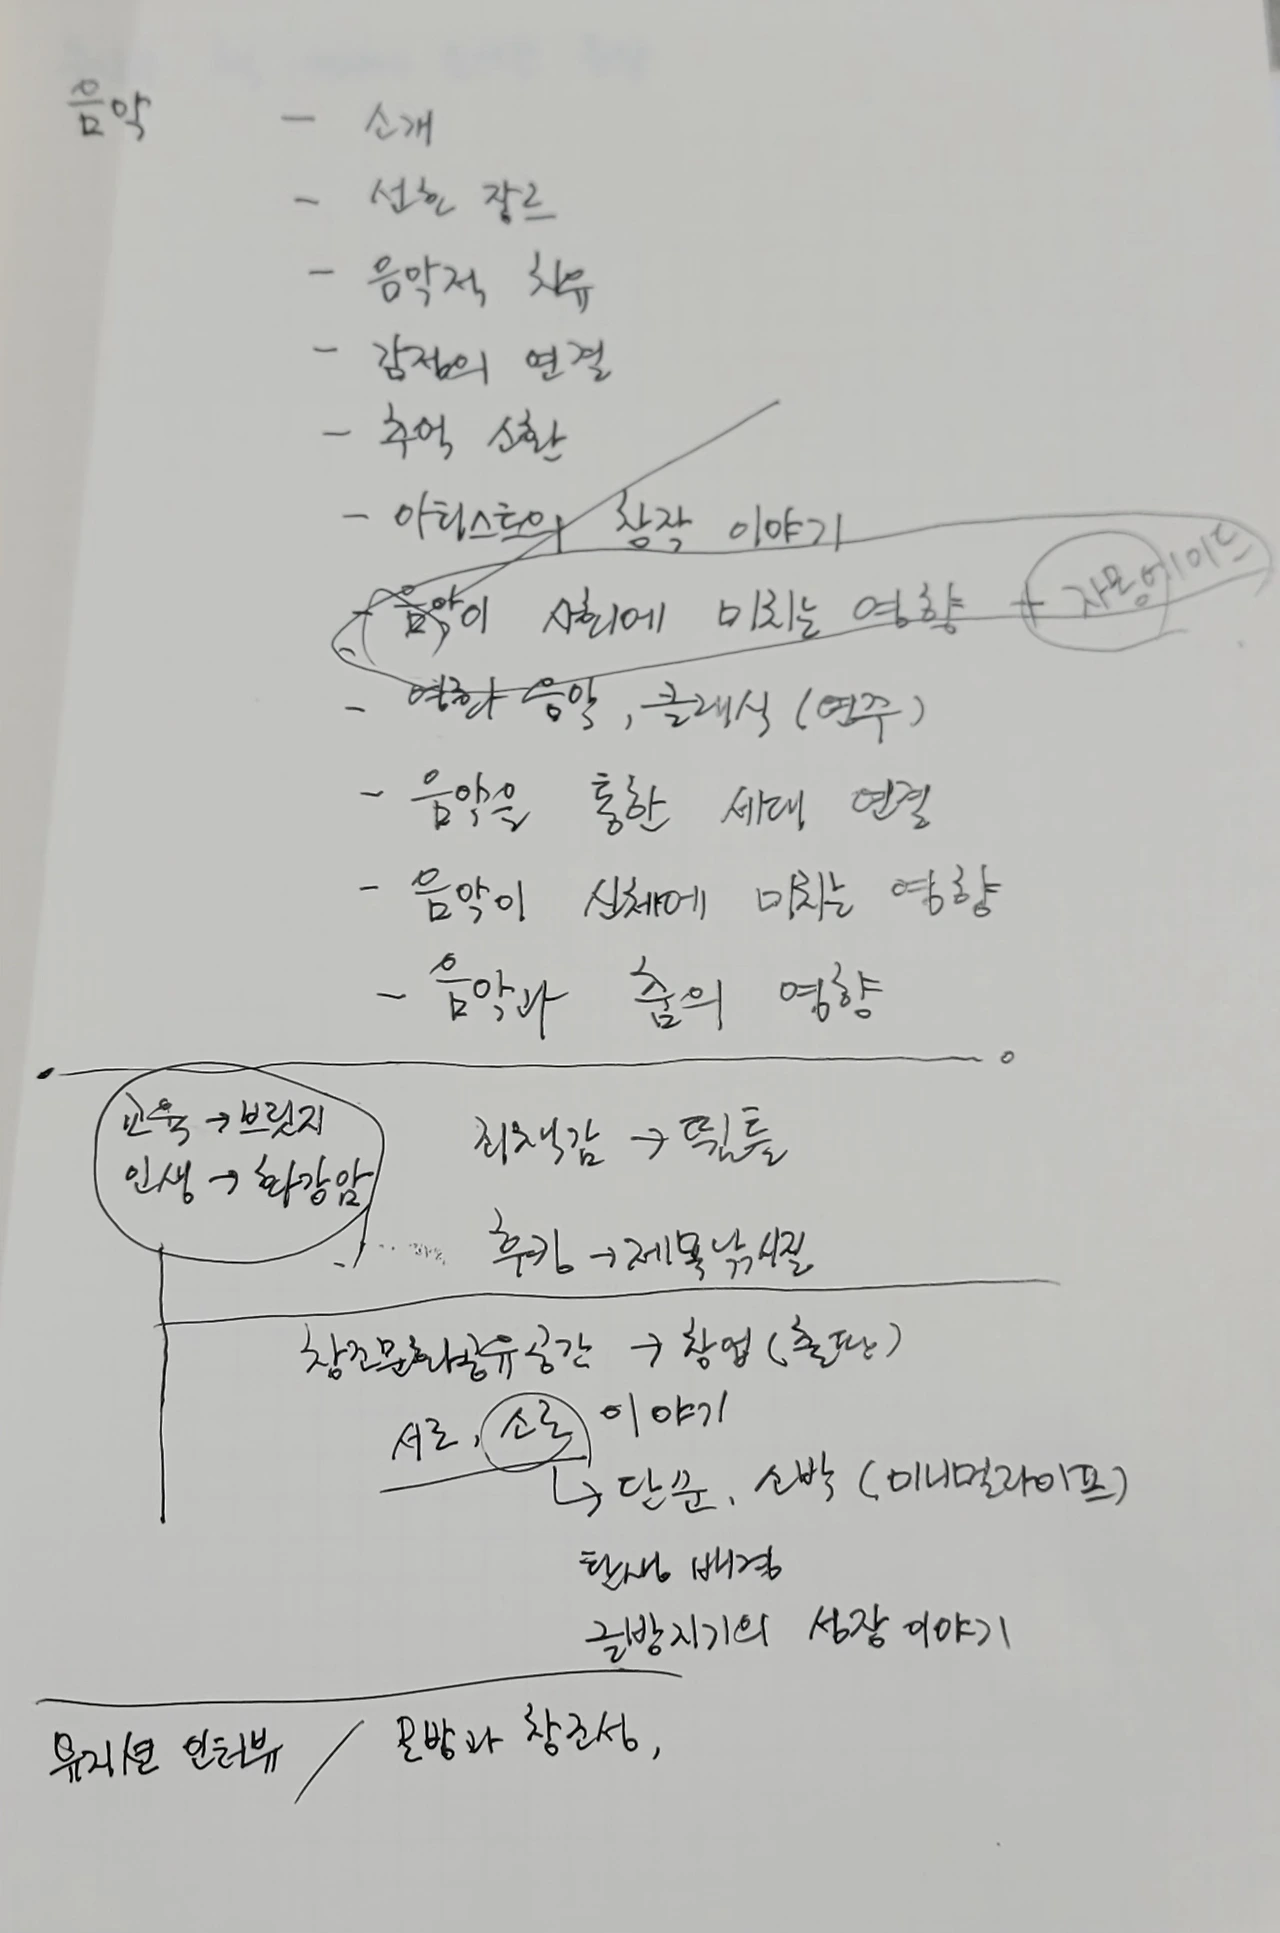 음악 - 소개
- 선호 장르
- 음악적 치유
- 감정의 연결
- 추억 소환
- 아티스트의 창작 이야기
- 음악이 사회에 미치는 영향 + 자몽에이드
- 영화 음악, 클래식 (연주)
- 음악을 통한 세대 연결
- 음악이 신체에 미치는 영향
- 음악과 춤의 영향
교육 → 브릿지
인생 → 화강암
죄책감 → 뜀틀
후킹 → 제목낚시질
창조문화공유공간 → 창업 (출판)
서로, 소로 이야기
↳ 단순, 소박 (미니멀라이프)
탄생 배경
글방지기의 성장 이야기
뮤지션 인터뷰 / 모방과 창조성,